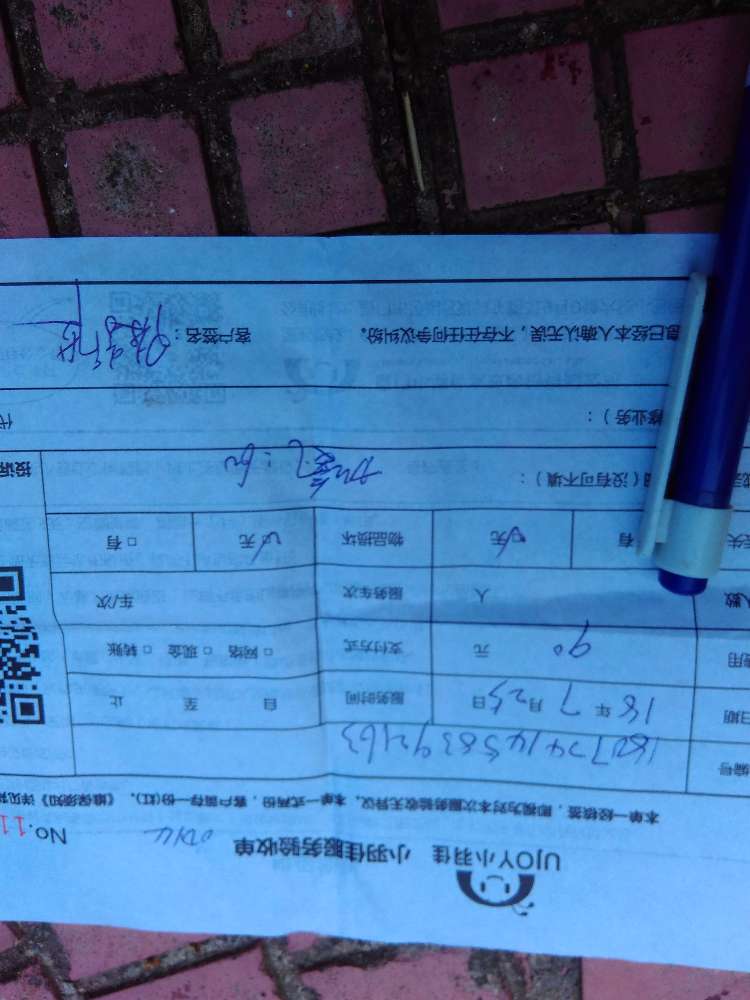 UJOY小羽佳 小羽佳服务验收单 No.11
本单一经核签，即视为对本次服务验收无异议，本单一式两份，客户留存一份(红)，《维保须知》详见
编号
日期 18年7月25日 服务时间 自 至 止
费用 90 元 支付方式 □网络 □现金 □转账
人数 人 服务车次 车/次
有 ☑无 物品损坏 ☑无 □有
(没有可不填)： 投诉
修业务)：
息已经本人确认无误，不存在任何争议纠纷。 客户签名：